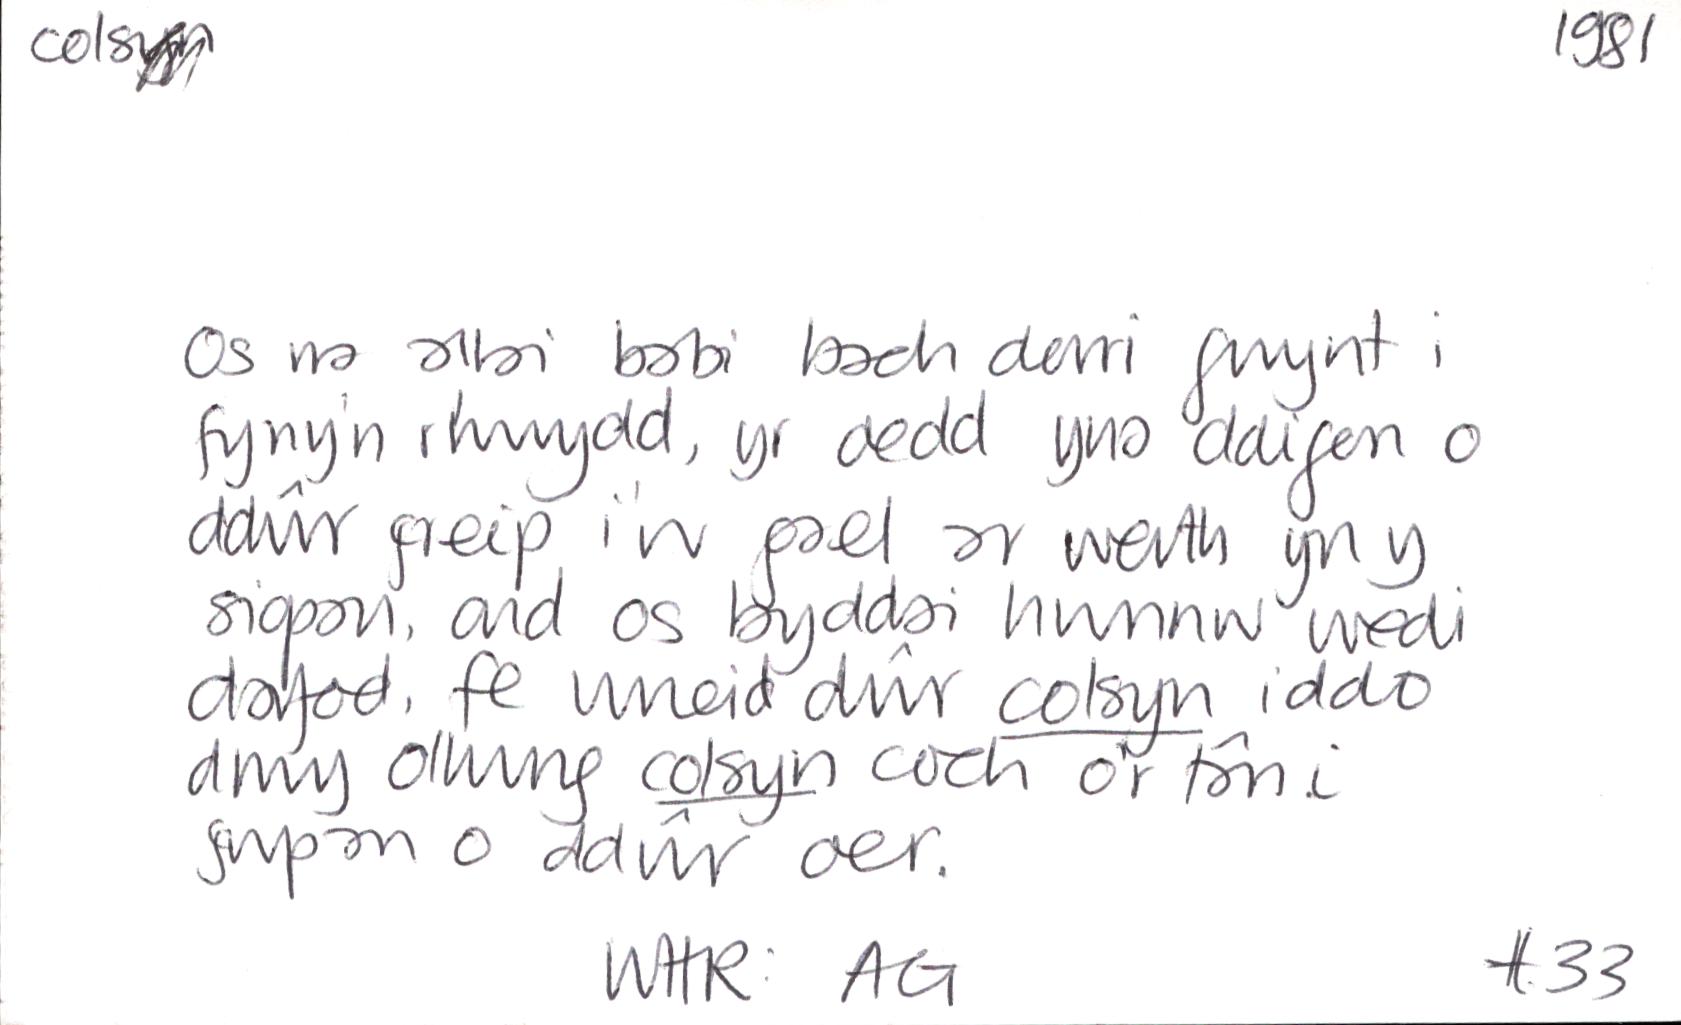 colsyn 1981
Os na allai babi bach dorri gwynt i
fyny'n rhwydd, yr oedd yno ddigon o
ddŵr greip i'w gael ar werth yn y
siopau, ond os byddai hwnnw wedi
darfod, fe wneid dŵr colsyn iddo
drwy ollwng colsyn coch o'r tân i
gwpan o ddŵr oer.
WHR: AG t.33